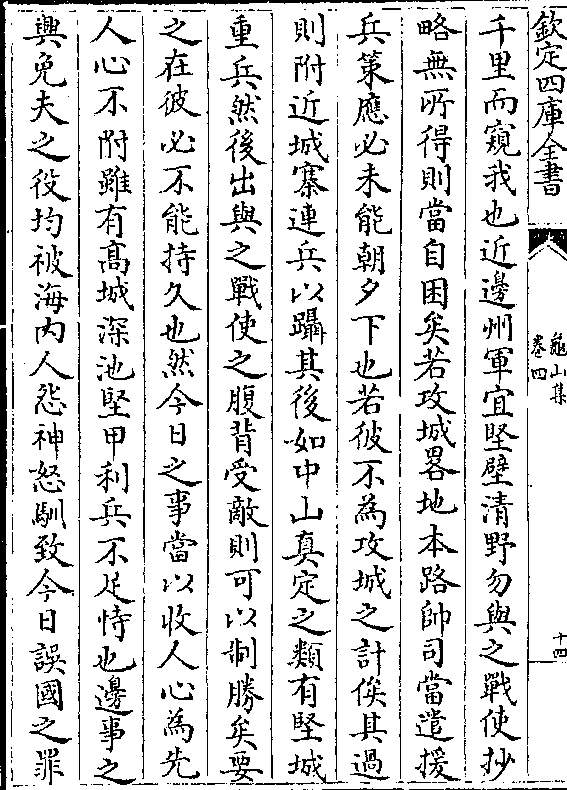 欽定四庫全書
龜山集
卷四
十四
千里而窺我也近邊州軍宜堅壁清野勿與之戰使抄
略無所得則當自困矣若攻城畧地本路帥司當遣援
兵策應必未能朝夕下也若彼不為攻城之計俟其過
則附近城寨連兵以躡其後如中山真定之類有堅城
重兵然後出與之戰使之腹背受敵則可以制勝矣要
之在彼必不能持久也然今日之事當以收人心為先
人心不附雖有髙城深池堅甲利兵不足恃也邊事之
興免夫之役均被海内人怨神怒馴致今日誤國之罪